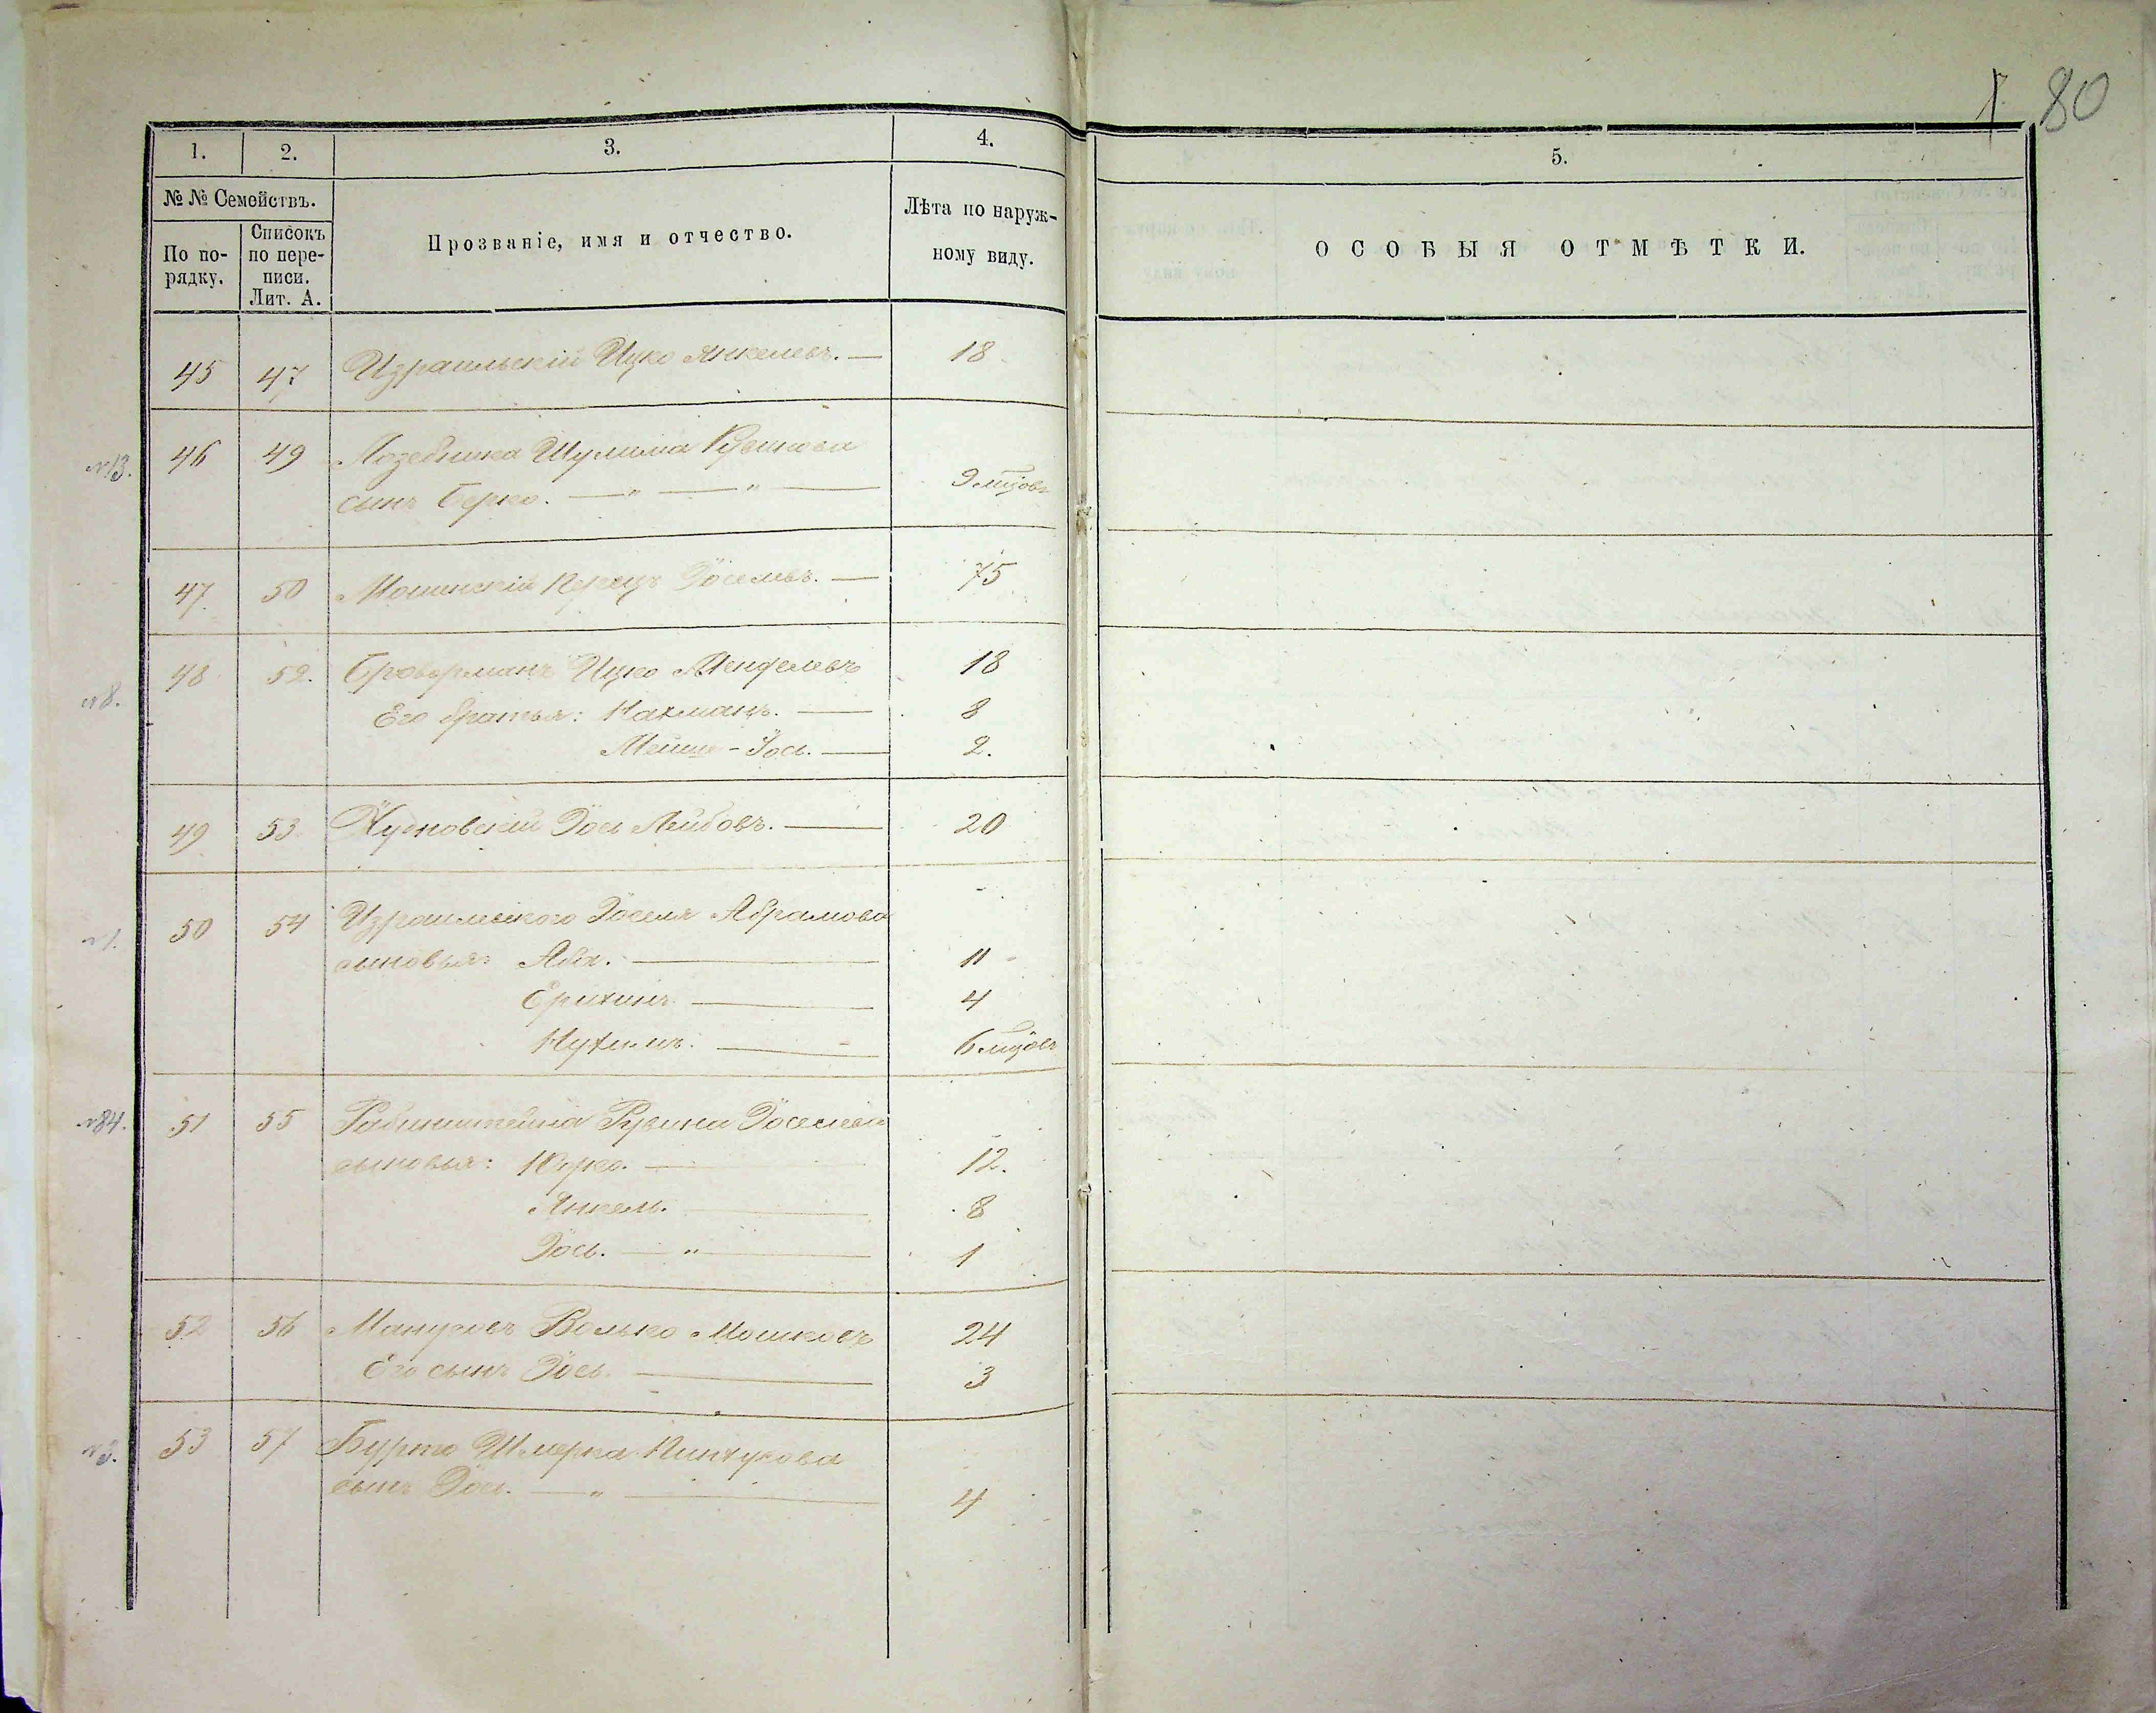 80
1. 2. 3. 4. 5.
№ № Семействъ.
По по-
рядку.
Списокъ
по пере-
писи.
Лит. А.
Прозваніе, имя и отчество.
Лѣта по наруж-
ному виду.
ОСОБЫЯ ОТМѢТКИ.
45 47 Израильскій Ицко Янкелевъ. — 18
№13. 46 49 Лозебника Шулима Рувинова
сынъ Берко. — " — " — 9 мцовъ
47 50 Мошинскій Перецъ Іоселевъ. — 75
№8. 48 52. Броверманъ Ицко Менделевъ 18
Его братья: Нахманъ. — 8
Мейше-Іось. — 2.
49 53 Іось Лейбовъ. — 20
№1. 50 54 Израильского Іоселя Абрамова
сыновья: Аба. — 11
4
Нухимъ. — 6 мцовъ
№84. 51 55 Рабинштейна Рувина Іоселева
сыновья: — 12.
Янкель. — 8
Іось. — " — 1
52 56 Волько Мошковъ 24
Его сынъ Іось. — 3
№3. 53 57 Шмерка Пинхусова
сынъ Іось. — " — 4